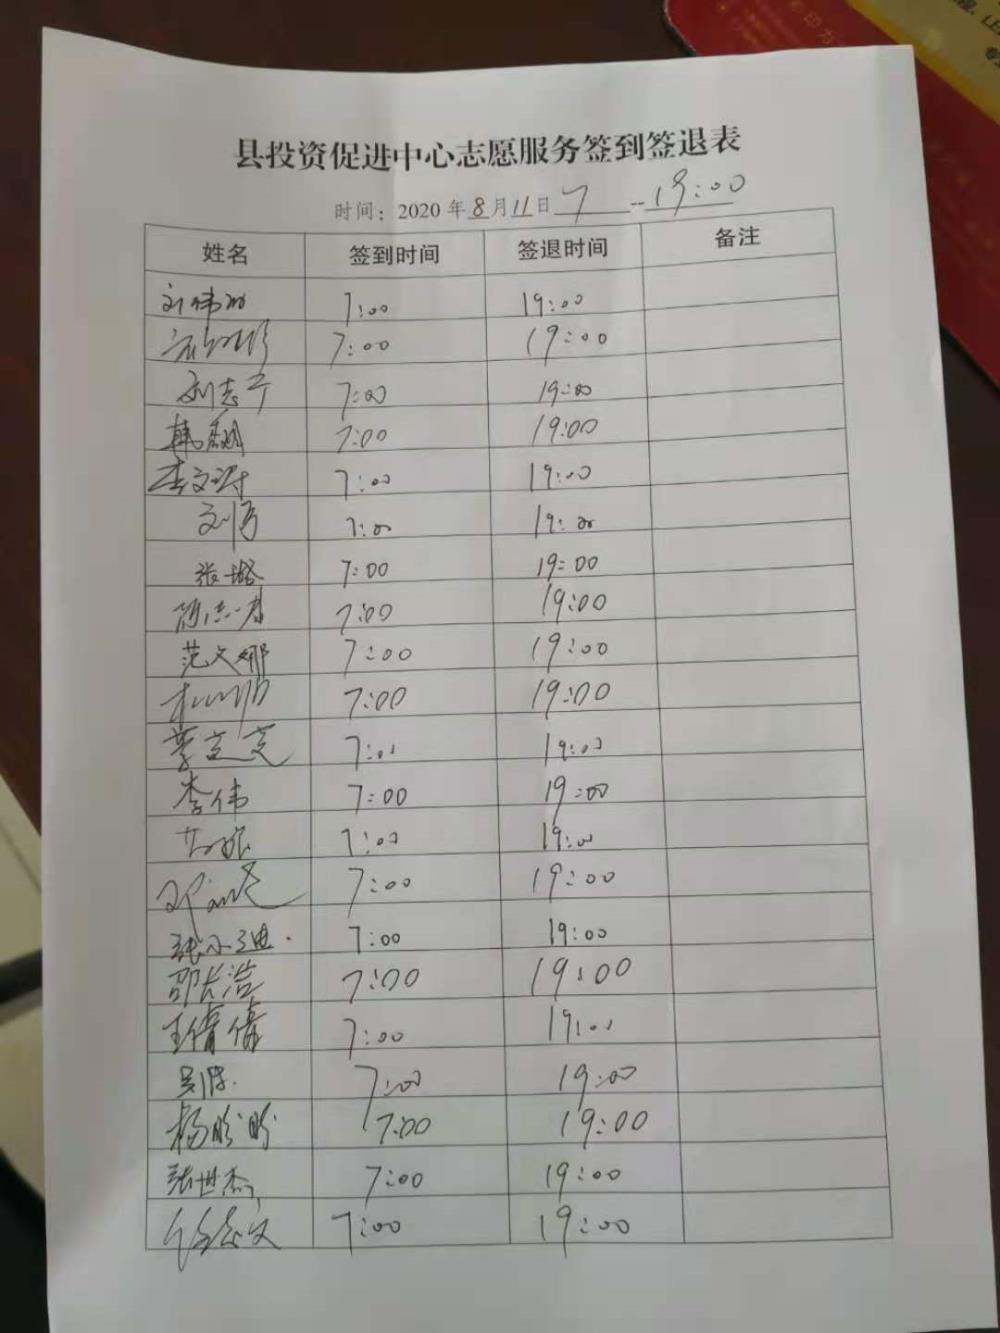 县投资促进中心志愿服务签到签退表
时间：2020年8月11日7--19:00
姓名 签到时间 签退时间 备注
7:00 19:00
7:00 19:00
刘志宁 7:00 19:00
韩 7:00 19:00
李文涛 7:00 19:00
刘 7:00 19:00
张璐 7:00 19:00
7:00 19:00
范文娜 7:00 19:00
7:00 19:00
7:00 19:00
李伟 7:00 19:00
7:00 19:00
7:00 19:00
张小迪 7:00 19:00
邵长浩 7:00 19:00
王倩倩 7:00 19:00
7:00 19:00
杨盼盼 7:00 19:00
张世杰 7:00 19:00
7:00 19:00